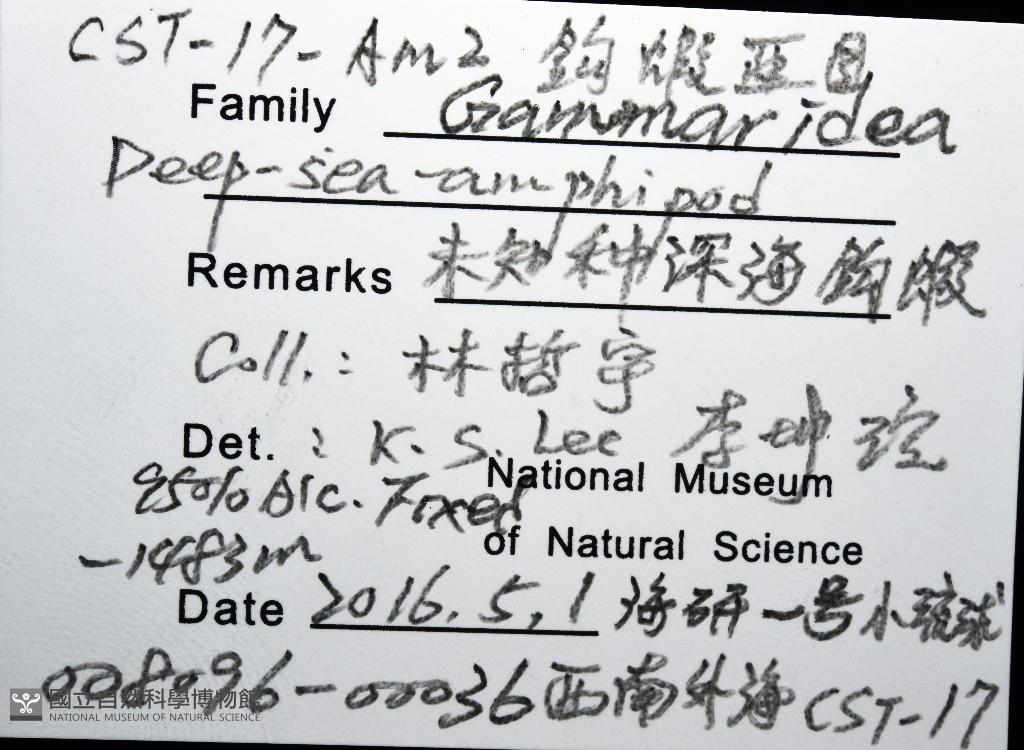 CST-17-Am2 鈎蝦亞目
Family Gammaridea
Deep-sea-amphipod
Remarks 未知种深海鈎蝦
Coll.: 林哲宇
Det. : K. S. Lee 李坤瑄
95% Alc. Fixed National Museum
of Natural Science
-1483m
Date 2016.5.1 海研一号小琉球
008096-00036西南外海 CST-17
國立自然科學博物館
NATIONAL MUSEUM OF NATURAL SCIENCE